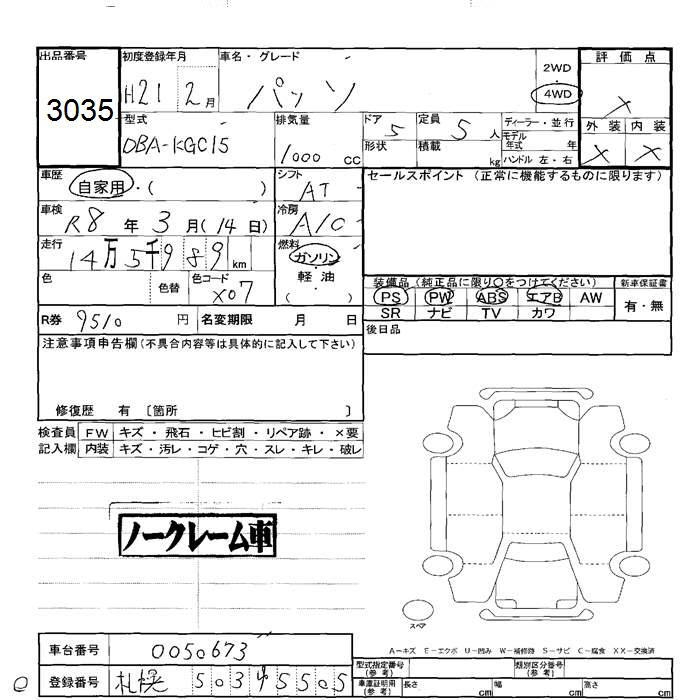 出品番号 初度登録年月 車名・グレード 2WD ・ 4WD 評価点
3035 H21 2月 パッソ
外装 内装
型式 排気量 ドア 定員 ディーラー・並行
DBA-KGC15 1000 cc 5 5人 モデル年式 年
形状 積載 kg ハンドル 左・右
車歴 自家用・( ) シフト AT セールスポイント (正常に機能するものに限ります)
車検 R8年 3月(14日) 冷房 A/C
走行 14万5千989km 燃料 ガソリン・軽油・( )
色 色替 色コード X07 装備品(純正品に限り○をつけてください) 新車保証書
PS PW ABS エアB AW 有・無
SR ナビ TV カワ
R券 9510 円 名変期限 月 日
後日品
注意事項申告欄(不具合内容等は具体的に記入して下さい)
修復歴 有 〔箇所 〕
検査員 FW キズ・飛石・ヒビ割・リペア跡・×要
記入欄 内装 キズ・汚レ・コゲ・穴・スレ・キレ・破レ
ノークレーム車
スペア
A-キズ E-エクボ U-凹み W-補修跡 S-サビ C-腐食 XX-交換済
車台番号 0050673
型式指定番号(参考) 類別区分番号(参考)
登録番号 札幌 503 5505
車庫証明用(参考) 長さ cm 幅 cm 高さ cm